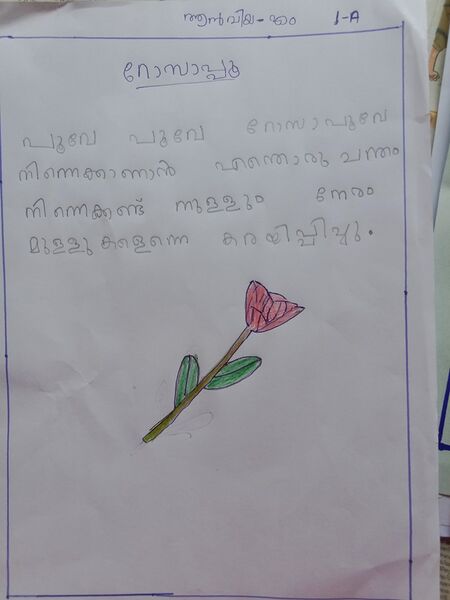 ആൻവിയ - എം 1-A
റോസാപ്പൂ
പൂവേ പൂവേ റോസാപൂവേ
നിന്നെക്കാണാൻ എന്തൊരു ചന്തം
നിന്നെക്കണ്ട് നുള്ളും നേരം
മുള്ളുകളെന്നെ കരയിപ്പിച്ചു.